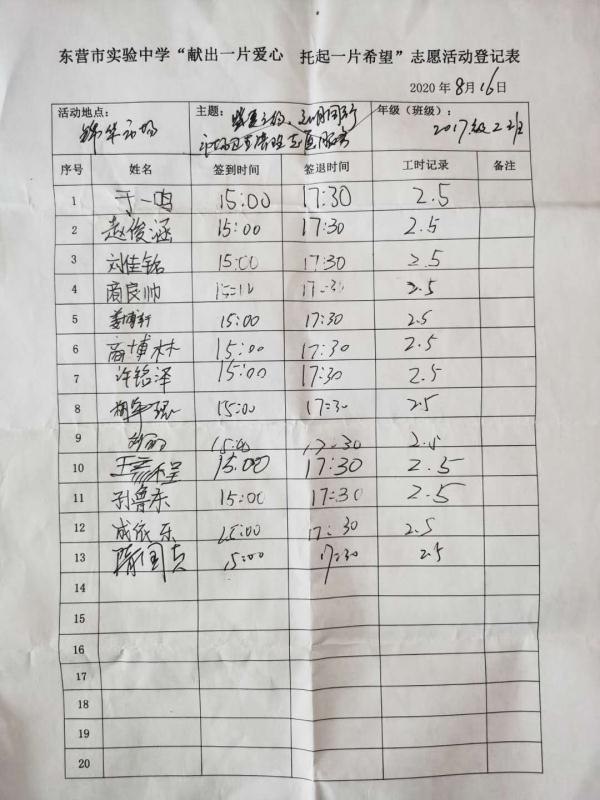 东营市实验中学“献出一片爱心 托起一片希望”志愿活动登记表
2020 年 8 月 16 日
活动地点： 主题： 年级（班级）：
锦华市场 志愿服务 2017级2班
序号 姓名 签到时间 签退时间 工时记录 备注
1 于一鸣 15:00 17:30 2.5
2 赵俊涵 15:00 17:30 2.5
3 刘佳铭 15:00 17:30 2.5
4 商良帅 17:30 2.5
5 姜博轩 15:00 17:30 2.5
6 商博林 15:00 17:30 2.5
7 许铭泽 15:00 17:30 2.5
8 15:00 17:30 2.5
9 15:00 17:30 2.5
10 15:00 17:30 2.5
11 孙鲁东 15:00 17:30 2.5
12 成依乐 15:00 17:30 2.5
13 15:00 17:30 2.5
14
15
16
17
18
19
20